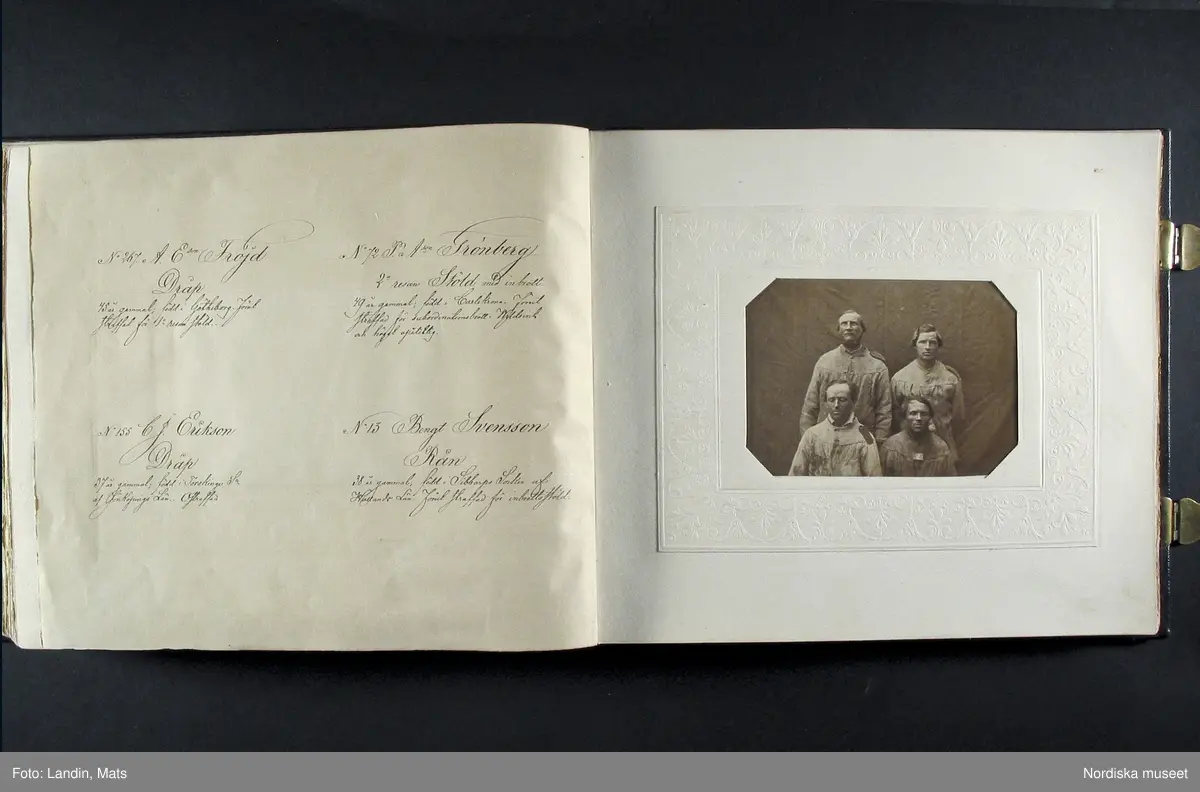 No 267 A Edm Fröjd
Dråp
45 år gammal, född i Götheborg. Förut
straffad för 4de resan stöld.
No 72 Grönberg
2a resan Stöld med inbrott
49 år gammal, född i Carlskrona. Förut
straffad för subordinationsbrott.
och högst opålitlig.
No 155 C J Erikson
Dråp
37 år gammal, född i
af Jönköpings Län. Ostraffad
No 13 Bengt Svensson
Rån
38 år gammal, född i Sibharps Socken af
Län. Förut straffad för inbrottsstöld.
Foto: Landin, Mats
Nordiska museet